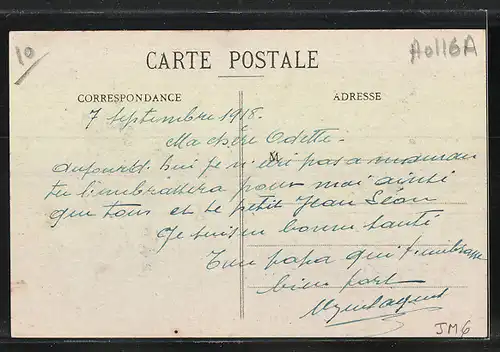 10
A0116A
CARTE POSTALE
CORRESPONDANCE
ADRESSE
7 Septembre 1918.
Ma chère Odette.
aujourd'hui je n'écri pas a maman
tu l'embrassera pour moi ainsi
que tous et le petit Jean Léon
Je suis en bonne santé
Ton papa qui t'embrasse
bien fort
JM6